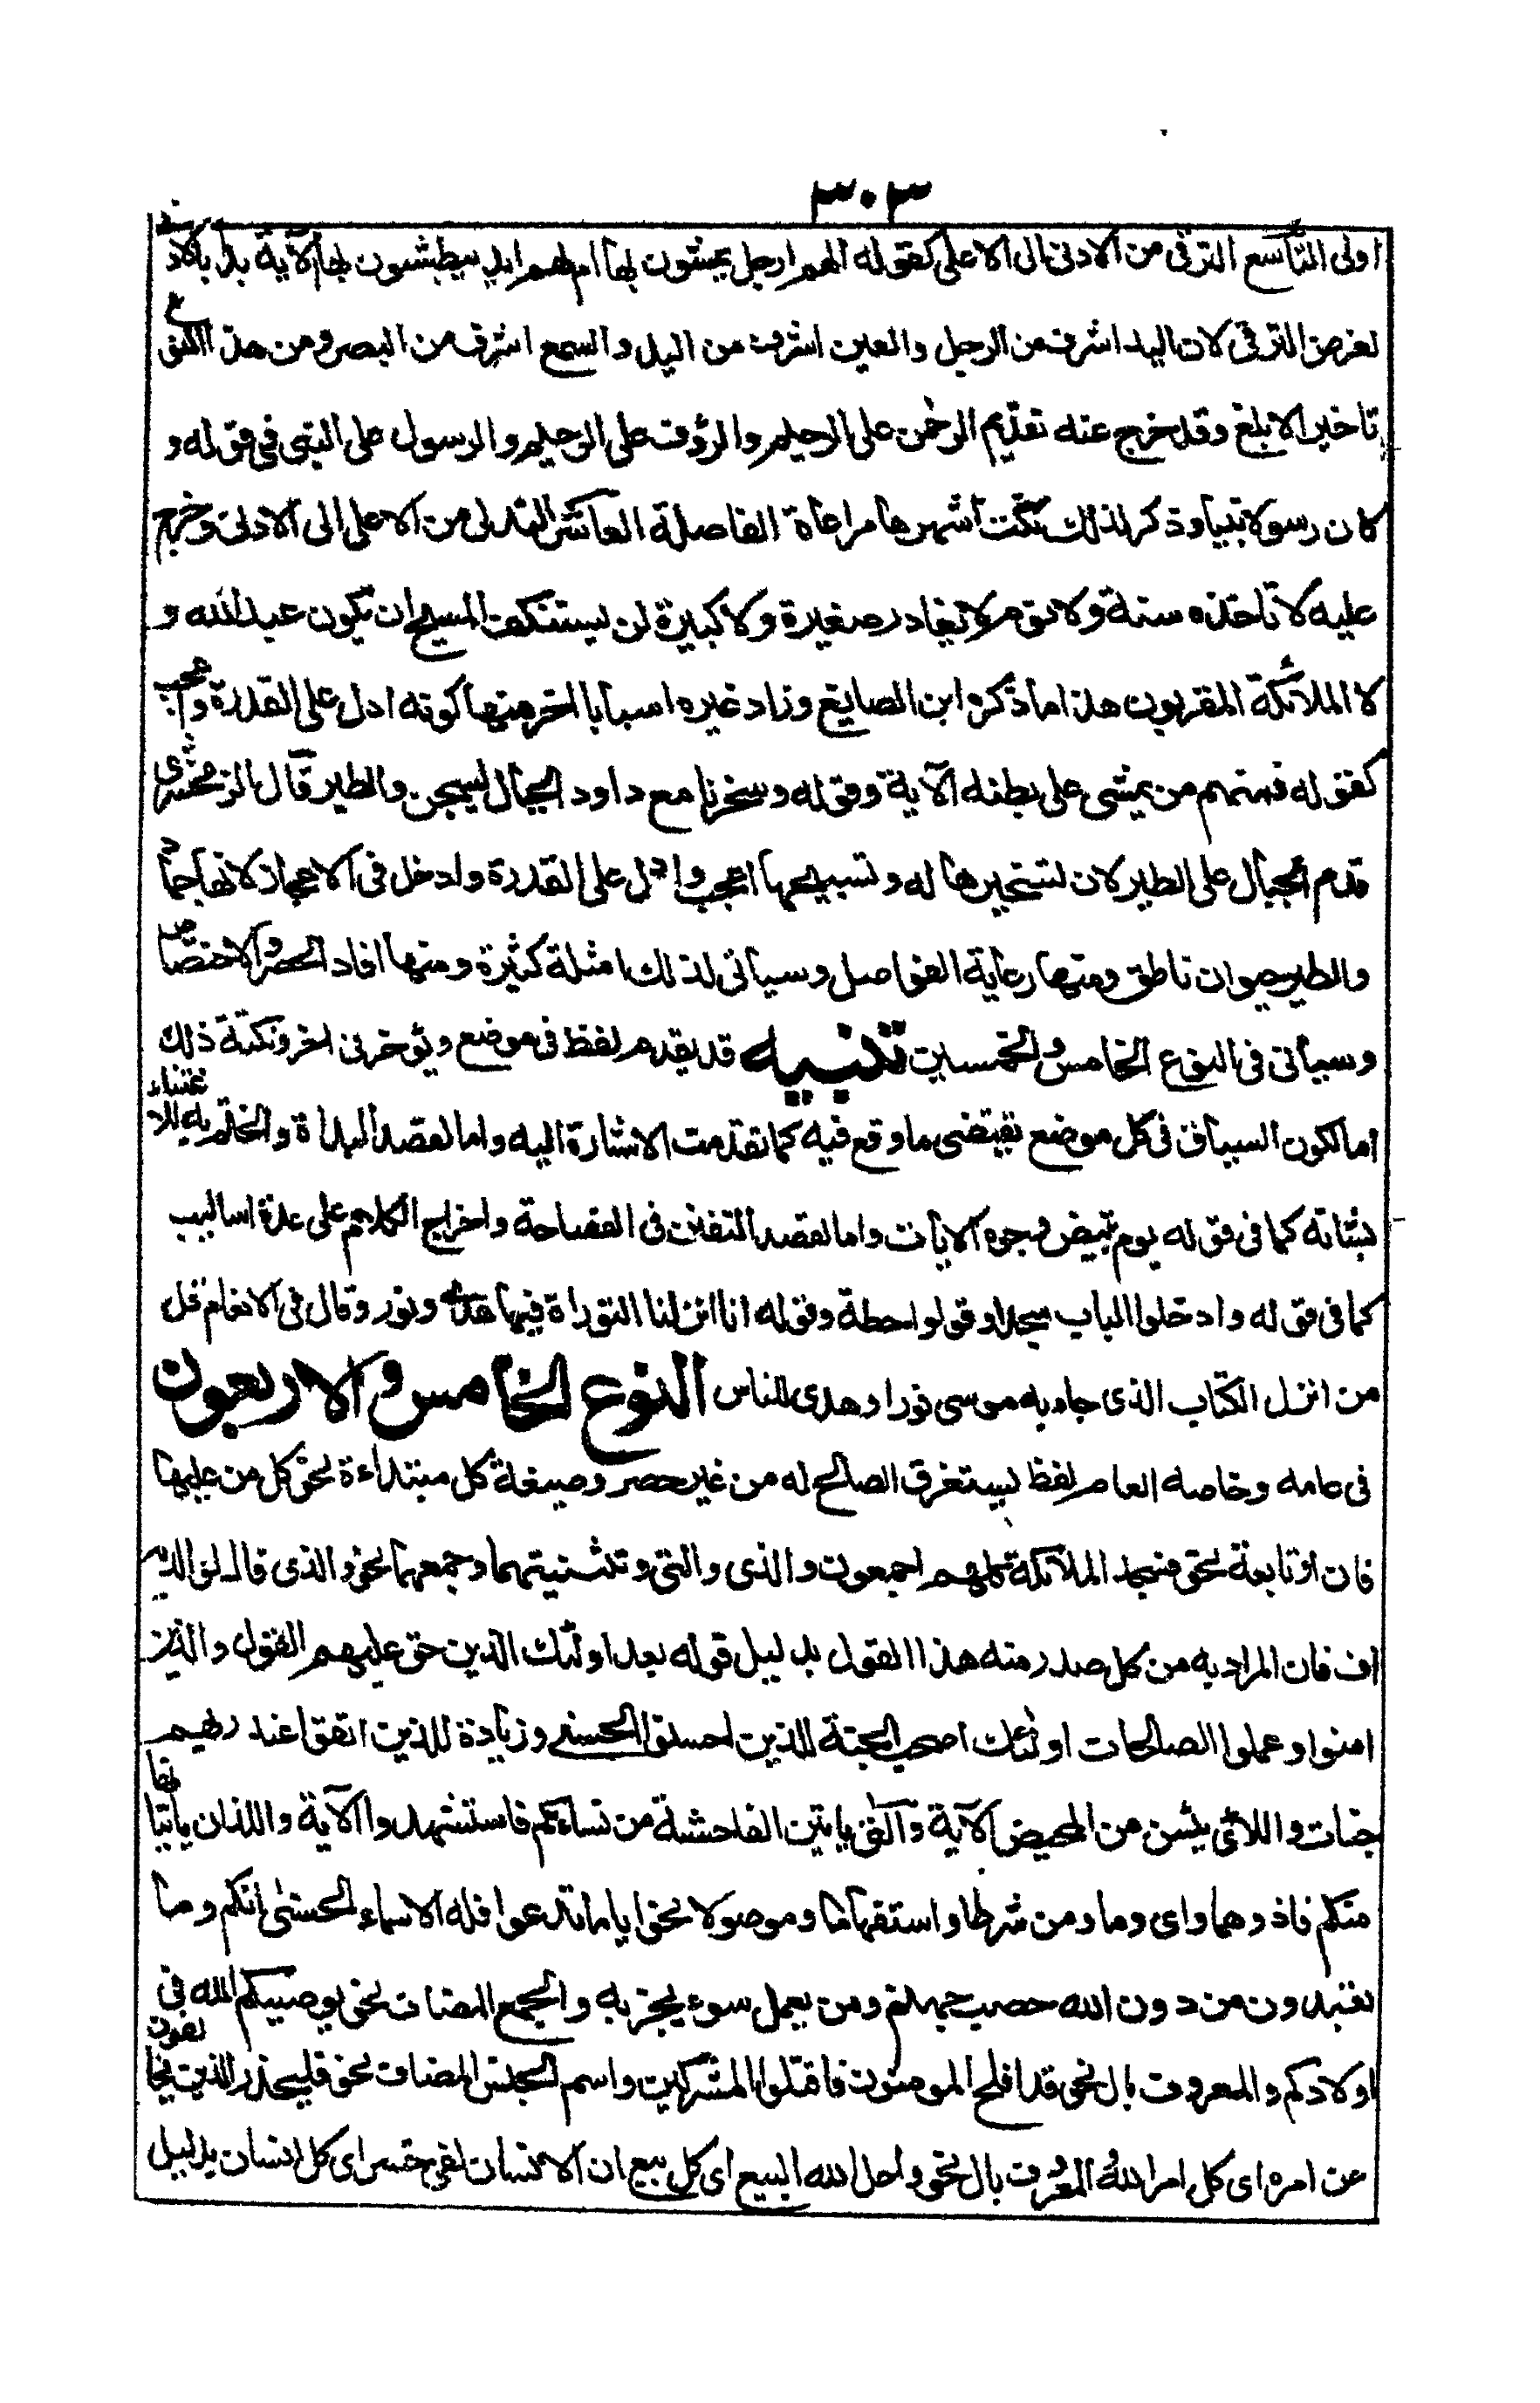 ٣٠٣
اولى التاسع الترقى من الادنى الى الاعلى كقوله الهم ارجل يمشون بها ام لهم ايد يبطشون بها الآية بدأ بالادنى
لغرض الترقى لان اليد اشرف من الرجل والعين اشرف من اليد والسمع اشرف من البصر ومن هذا النوع
تاخير الابلغ وقد خرج عنه تقديم الرحمن على الرحيم والرؤف على الرحيم والرسول على النبى فى قوله و
كان رسولا نبيا وذكر لذلك نكت اشهرها مراعاة الفاصلة العاشر التدلى من الاعلى الى الادنى وخرج
عليه لا تاخذه سنة ولا نوم لا يغادر صغيرة ولا كبيرة لن يستنكف المسيح ان يكون عبد الله و
لا الملائكة المقربون هذا ما ذكره ابن الصايغ وزاد غيره اسبابا اخر منها كونه ادل على القدرة واعجب
كقوله فمنهم من يمشى على بطنه الآية وقوله وسخرنا مع داود الجبال يسبحن والطير قال الزمخشرى
قدم الجبال على الطير لان تسخيرها له وتسبيحها اعجب وادل على القدرة وادخل فى الاعجاز لانها جماد
والطير حيوان ناطق ومنها رعاية الفواصل وسياتى لذلك امثلة كثيرة ومنها افاد الحصر والاختصاص
وسياتى فى النوع الخامس والخمسين تنبيه قد يقدم لفظ فى موضع ويؤخر فى اخر ونكتة ذلك
اما لكون السياق فى كل موضع يقتضى ما وقع فيه كما تقدمت الاشارة اليه واما لقصد البداة والختم به للاعتناء
بشانه كما فى قوله يوم تبيض وجوه الايات واما لقصد التفنن فى الفصاحة واخراج الكلام على عدة اساليب
كما فى قوله وادخلوا الباب سجدا وقولوا حطة وقوله انا انزلنا التوراة فيها هدى ونور وقال فى الانعام قل
من انزل الكتاب الذى جاء به موسى نورا وهدى للناس النوع الخامس والاربعون
فى عامه وخاصه العام لفظ يستغرق الصالح له من غير حصر وصيغة كل مبتداءة نحو كل من عليها
فان او تابعة نحو فسجد الملائكة كلهم اجمعون والذى والتى وتثنيتهما وجمعهما نحو والذى قال لوالديه
اف فان المراد به من كل صدر منه هذا القول بدليل قوله بعد اولئك الذين حق عليهم القول والذين
امنوا وعملوا الصالحات اولئك اصحب الجنة للذين احسنوا الحسنى وزيادة للذين اتقوا عند ربهم
جنات واللائى يئسن من المحيض الآية والتى ياتين الفاحشة من نساءكم فاستشهدوا الآية واللذان ياتيانها
منكم فاذوهما واى وما ومن شرطا واستفهاما وموصولا نحو ايا ما تدعوا فله الاسماء الحسنى انكم وما
تعبدون من دون الله حصب جهنم ومن يعمل سوء يجز به والجمع المضاف نحو يوصيكم الله فى
اولادكم والمعروف بال نحو قد افلح المومنون فاقتلوا المشركين واسم الجنس المضاف نحو فليحذر الذين يخالفون
عن امره اى كل امر الله المعروف بال نحو واحل الله البيع اى كل بيع ان الانسان لفى خسر اى كل انسان بدليل